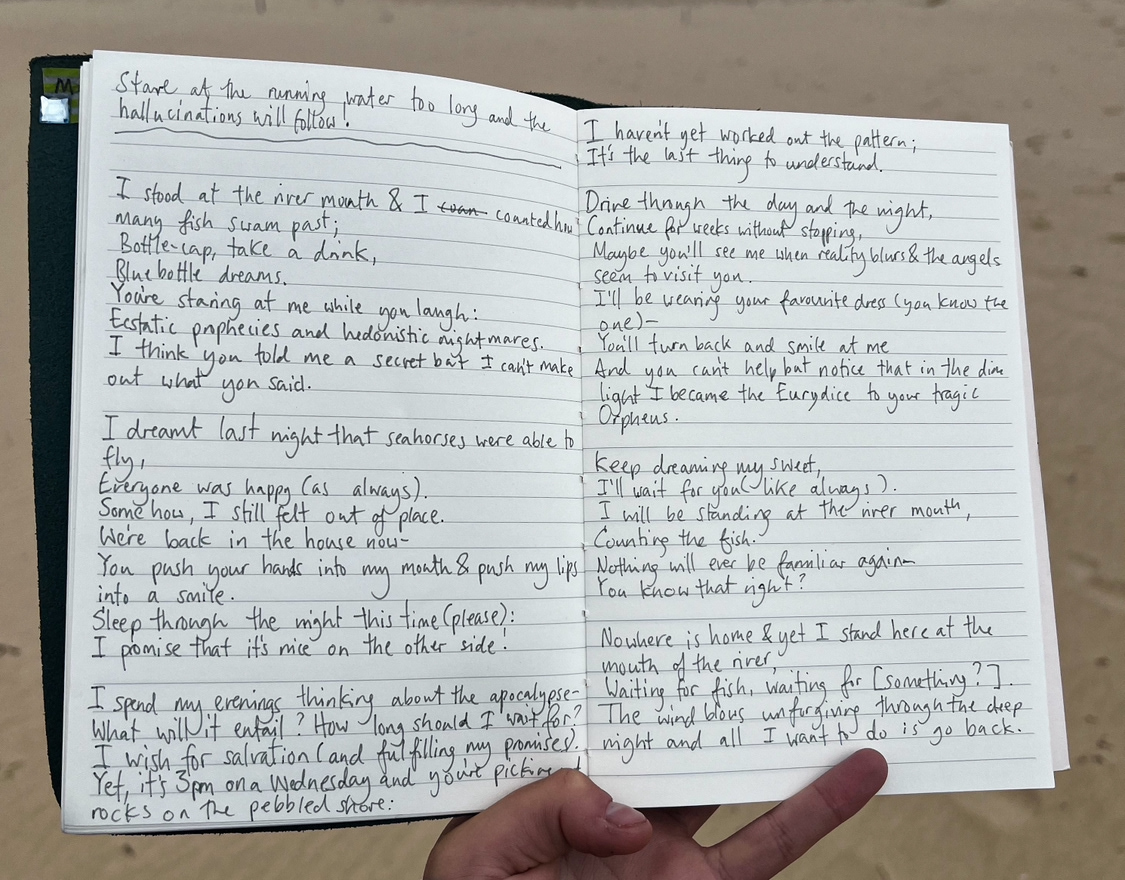 M
Stare at the running water too long and the
hallucinations will follow!
I stood at the river mouth & I counted how
many fish swam past;
Bottle-cap, take a drink,
Bluebottle dreams.
You're staring at me while you laugh:
Ecstatic prophecies and hedonistic nightmares.
I think you told me a secret but I can't make
out what you said.
I dreamt last night that seahorses were able to
fly,
Everyone was happy (as always).
Somehow, I still felt out of place.
We're back in the house now-
You push your hands into my mouth & push my lips
into a smile.
Sleep through the night this time (please):
I promise that it's nice on the other side!
I spend my evenings thinking about the apocalypse-
What will it entail? How long should I wait for?
I wish for salvation (and fulfilling my promises).
Yet, it's 3pm on a Wednesday and you're picking
rocks on the pebbled shore:
I haven't yet worked out the pattern;
It's the last thing to understand.
Drive through the day and the night,
Continue for weeks without stopping,
Maybe you'll see me when reality blurs & the angels
seem to visit you.
I'll be wearing your favourite dress (you know the
one)-
You'll turn back and smile at me
And you can't help but notice that in the dim
light I became the Eurydice to your tragic
Orpheus.
Keep dreaming my sweet,
I'll wait for you (like always).
I will be standing at the river mouth,
Counting the fish.
Nothing will ever be familiar again-
You know that right?
Nowhere is home & yet I stand here at the
mouth of the river,
Waiting for fish, waiting for [something?].
The wind blows unforgiving through the deep
night and all I want to do is go back.